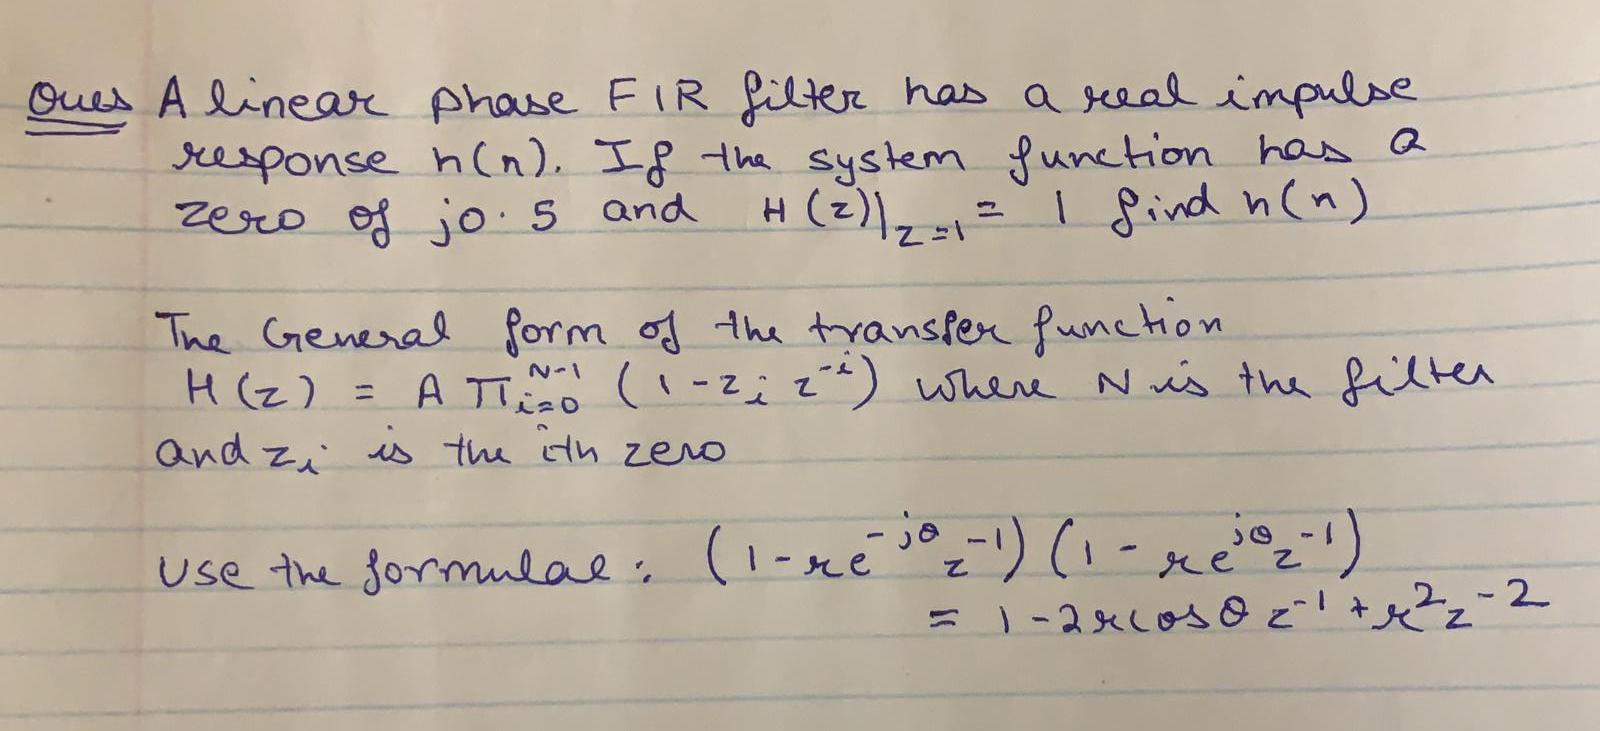 Ques A linear phase FIR filter has a real impulse
response h(n). If the system function has a
zero of j0.5 and H(z)|z=1 = 1 find h(n)
The General form of the transfer function
H(z) = A Π_{i=0}^{N-1} (1 - z_i z^{-i}) where N is the filter
and z_i is the ith zero
Use the formulae : (1 - re^{-jθ} z^{-1}) (1 - re^{jθ} z^{-1})
= 1 - 2r cos θ z^{-1} + r^2 z^{-2}